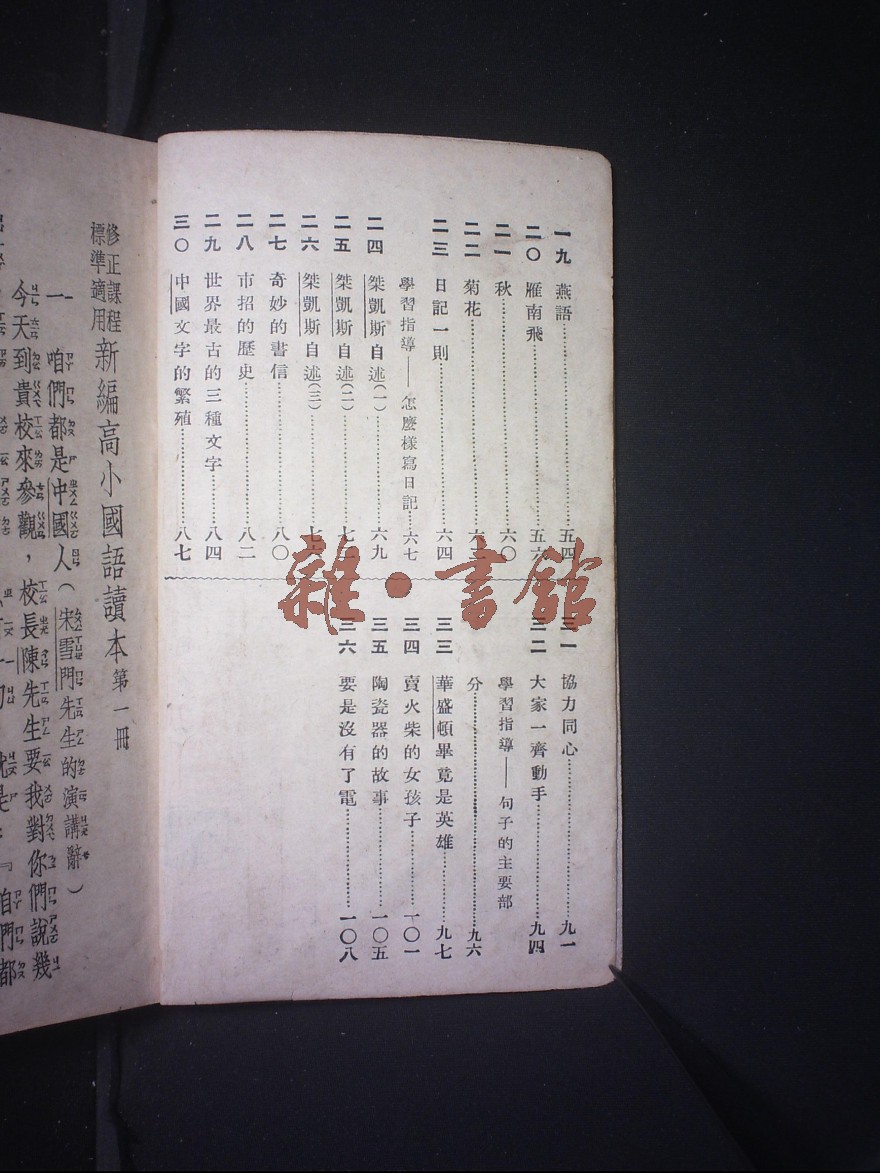 一九 燕語……五四
二〇 雁南飛……五六
二一 秋……六〇
二二 菊花……六三
二三 日記一則……六四
學習指導——怎麼樣寫日記……六七
二四 桀凱斯自述(一)……六九
二五 桀凱斯自述(二)……七二
二六 桀凱斯自述(三)……七六
二七 奇妙的書信……八〇
二八 市招的歷史……八二
二九 世界最古的三種文字……八四
三〇 中國文字的繁殖……八七
三一 協力同心……九一
三二 大家一齊動手……九四
學習指導——句子的主要部
分……九六
三三 華盛頓畢竟是英雄……九七
三四 賣火柴的女孩子……一〇一
三五 陶瓷器的故事……一〇五
三六 要是沒有了電……一〇八
雜·書館
修正課程
標準適用
新編高小國語讀本 第一冊
一 咱們都是中國人(朱雪門先生的演講辭)
今天到貴校來參觀,校長陳先生要我對你們說幾
是:『咱們都